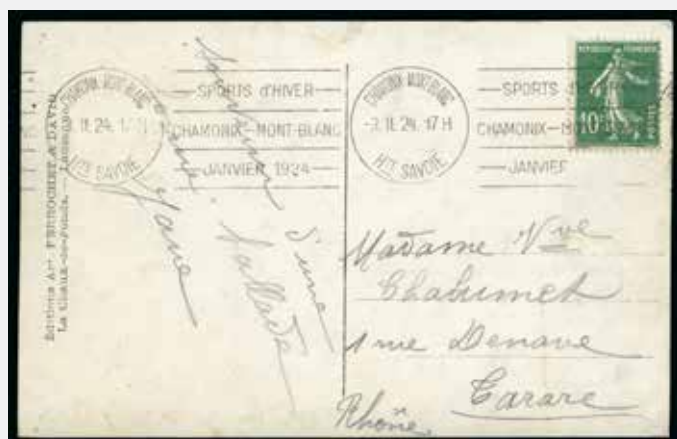 Editions Art. PERROCHET & DAVID
La Chaux-de-Fonds. — Lausanne
CHAMONIX MONT-BLANC
II.24. 17H
Hte SAVOIE
SPORTS d'HIVER
CHAMONIX-MONT-BLANC
JANVIER 1924
CHAMONIX MONT-BLANC
II.24. 17H
Hte SAVOIE
SPORTS
CHAMONIX-MON
JANVIER
REPUBLIQUE FRANCAISE
10c
POSTES
Souvenir d'une
Ballade
Jane
Madame Vve
Chabumet
1 rue Denave
Tarare
Rhône